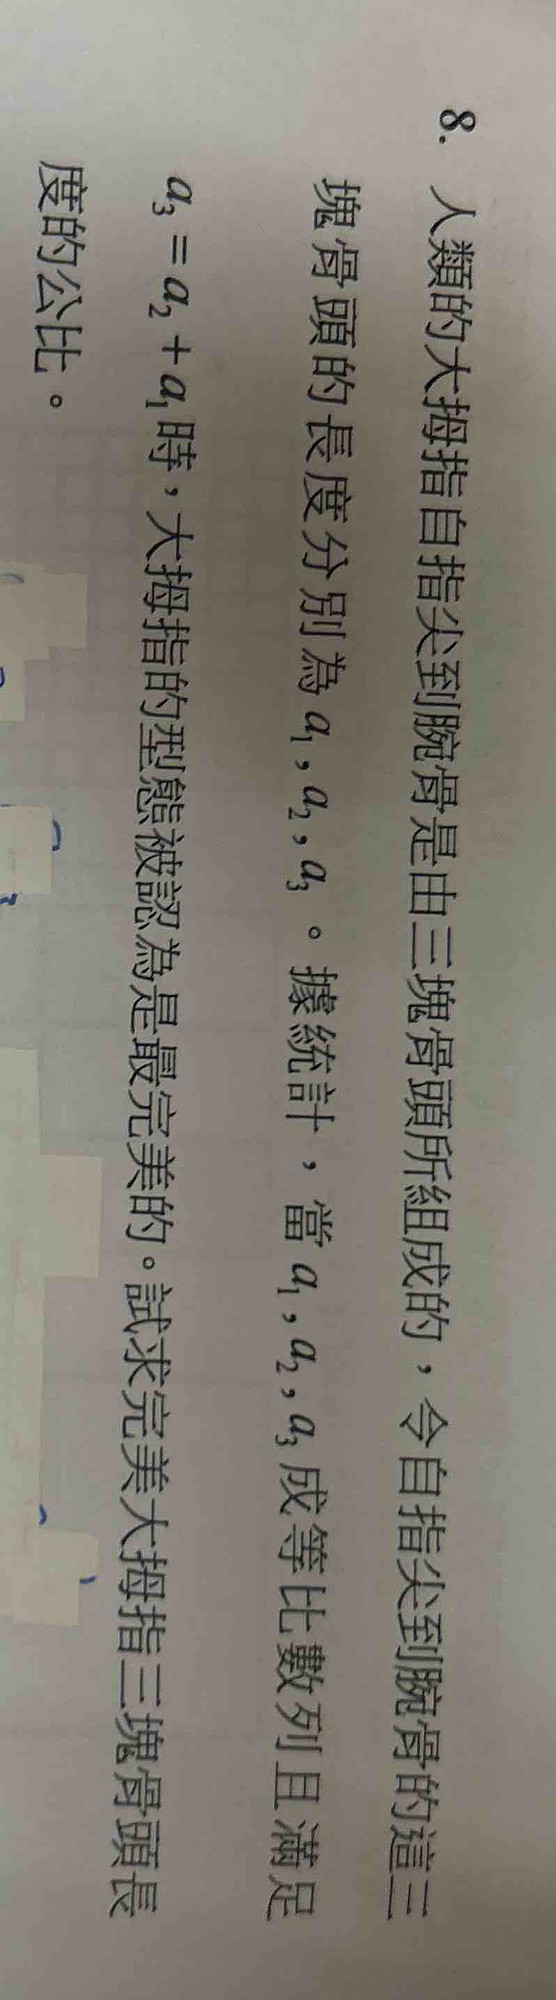 8. 人類的大拇指自指尖到腕骨是由三塊骨頭所組成的，令自指尖到腕骨的這三
塊骨頭的長度分別為 a₁，a₂，a₃。據統計，當 a₁，a₂，a₃ 成等比數列且滿足
a₃ = a₂ + a₁ 時，大拇指的型態被認為是最完美的。試求完美大拇指三塊骨頭長
度的公比。